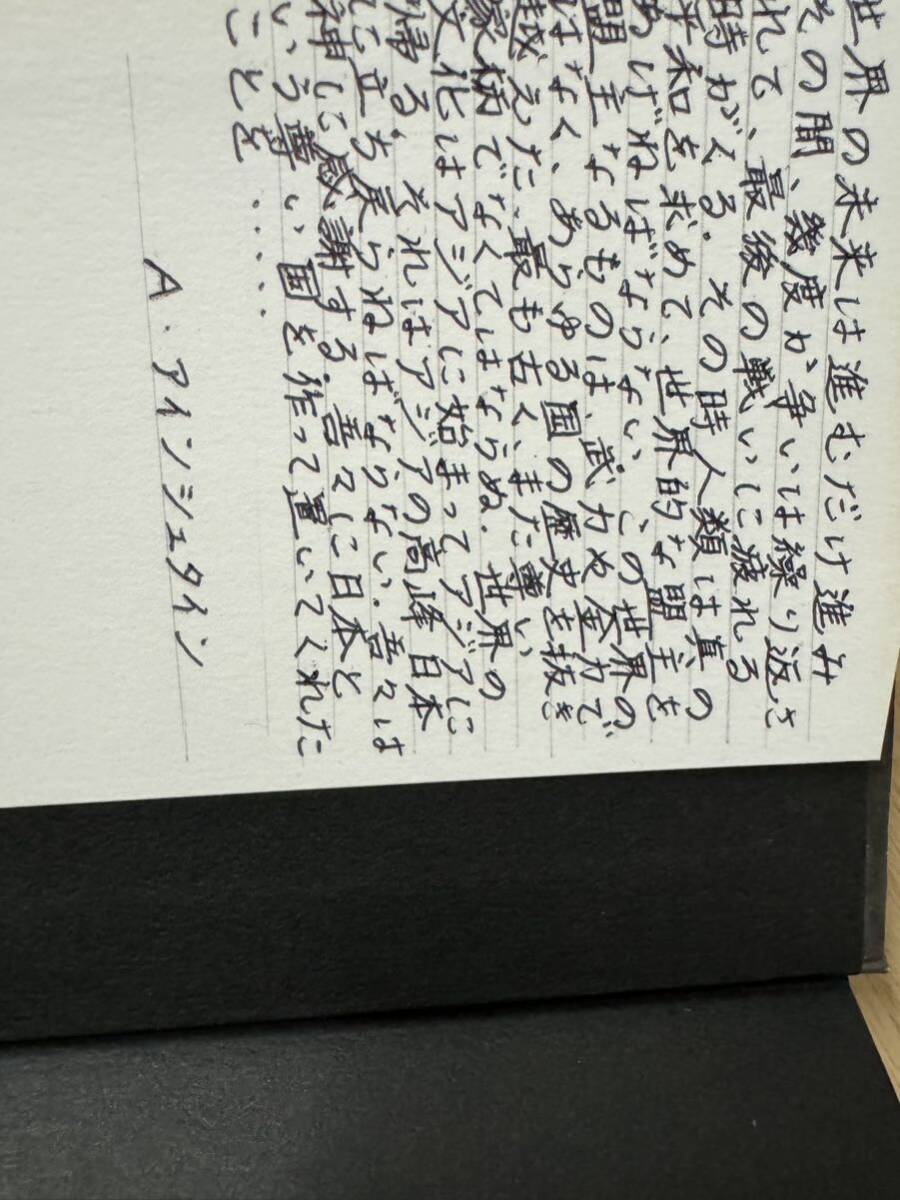 世界の未来は進むだけ進み
その間、幾度か争いは繰り返さ
れて、最後の戦いに疲れる
時がくる. その時人類は真の
平和を求めて、世界的な盟主を
あげねばならない. この世界の
盟主なるものは、武力や金力で
はなく、あらゆる国の歴史を抜き
越えた、最も古く、また尊い
家柄でなくてはならぬ. 世界の
文化はアジアに始まってアジアに
帰る. それはアジアの高峰日本
に立ち戻らねばならない. 吾々は
神に感謝する. 吾々に日本と
いう尊い国を作って置いてくれた
ことを.....
A. アインシュタイン